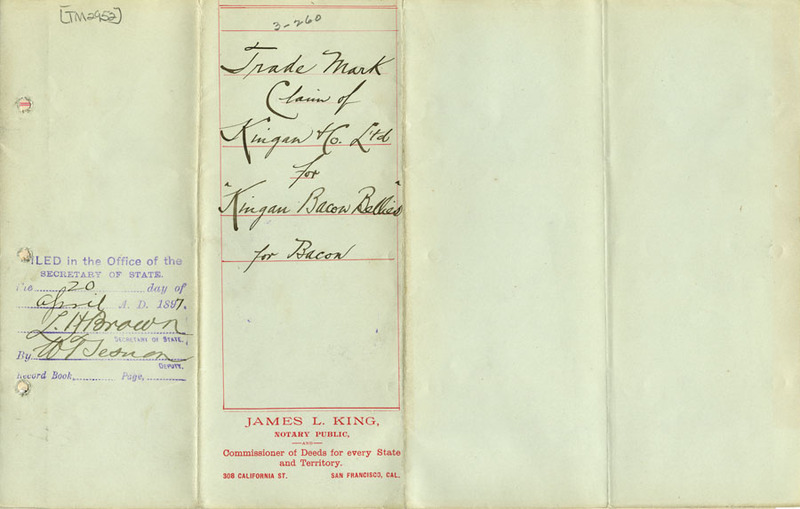 [TM2952]
FILED in the Office of the
SECRETARY OF STATE.
the 20 day of
April A. D. 1897.
L. H Brown
SECRETARY OF STATE.
By
DEPUTY.
Record Book, Page,
3-260
Trade Mark
Claim of
Kingan & Co. Ltd
for
"Kingan Bacon Bellies"
for Bacon
JAMES L. KING,
NOTARY PUBLIC,
AND
Commissioner of Deeds for every State
and Territory.
308 CALIFORNIA ST. SAN FRANCISCO, CAL.